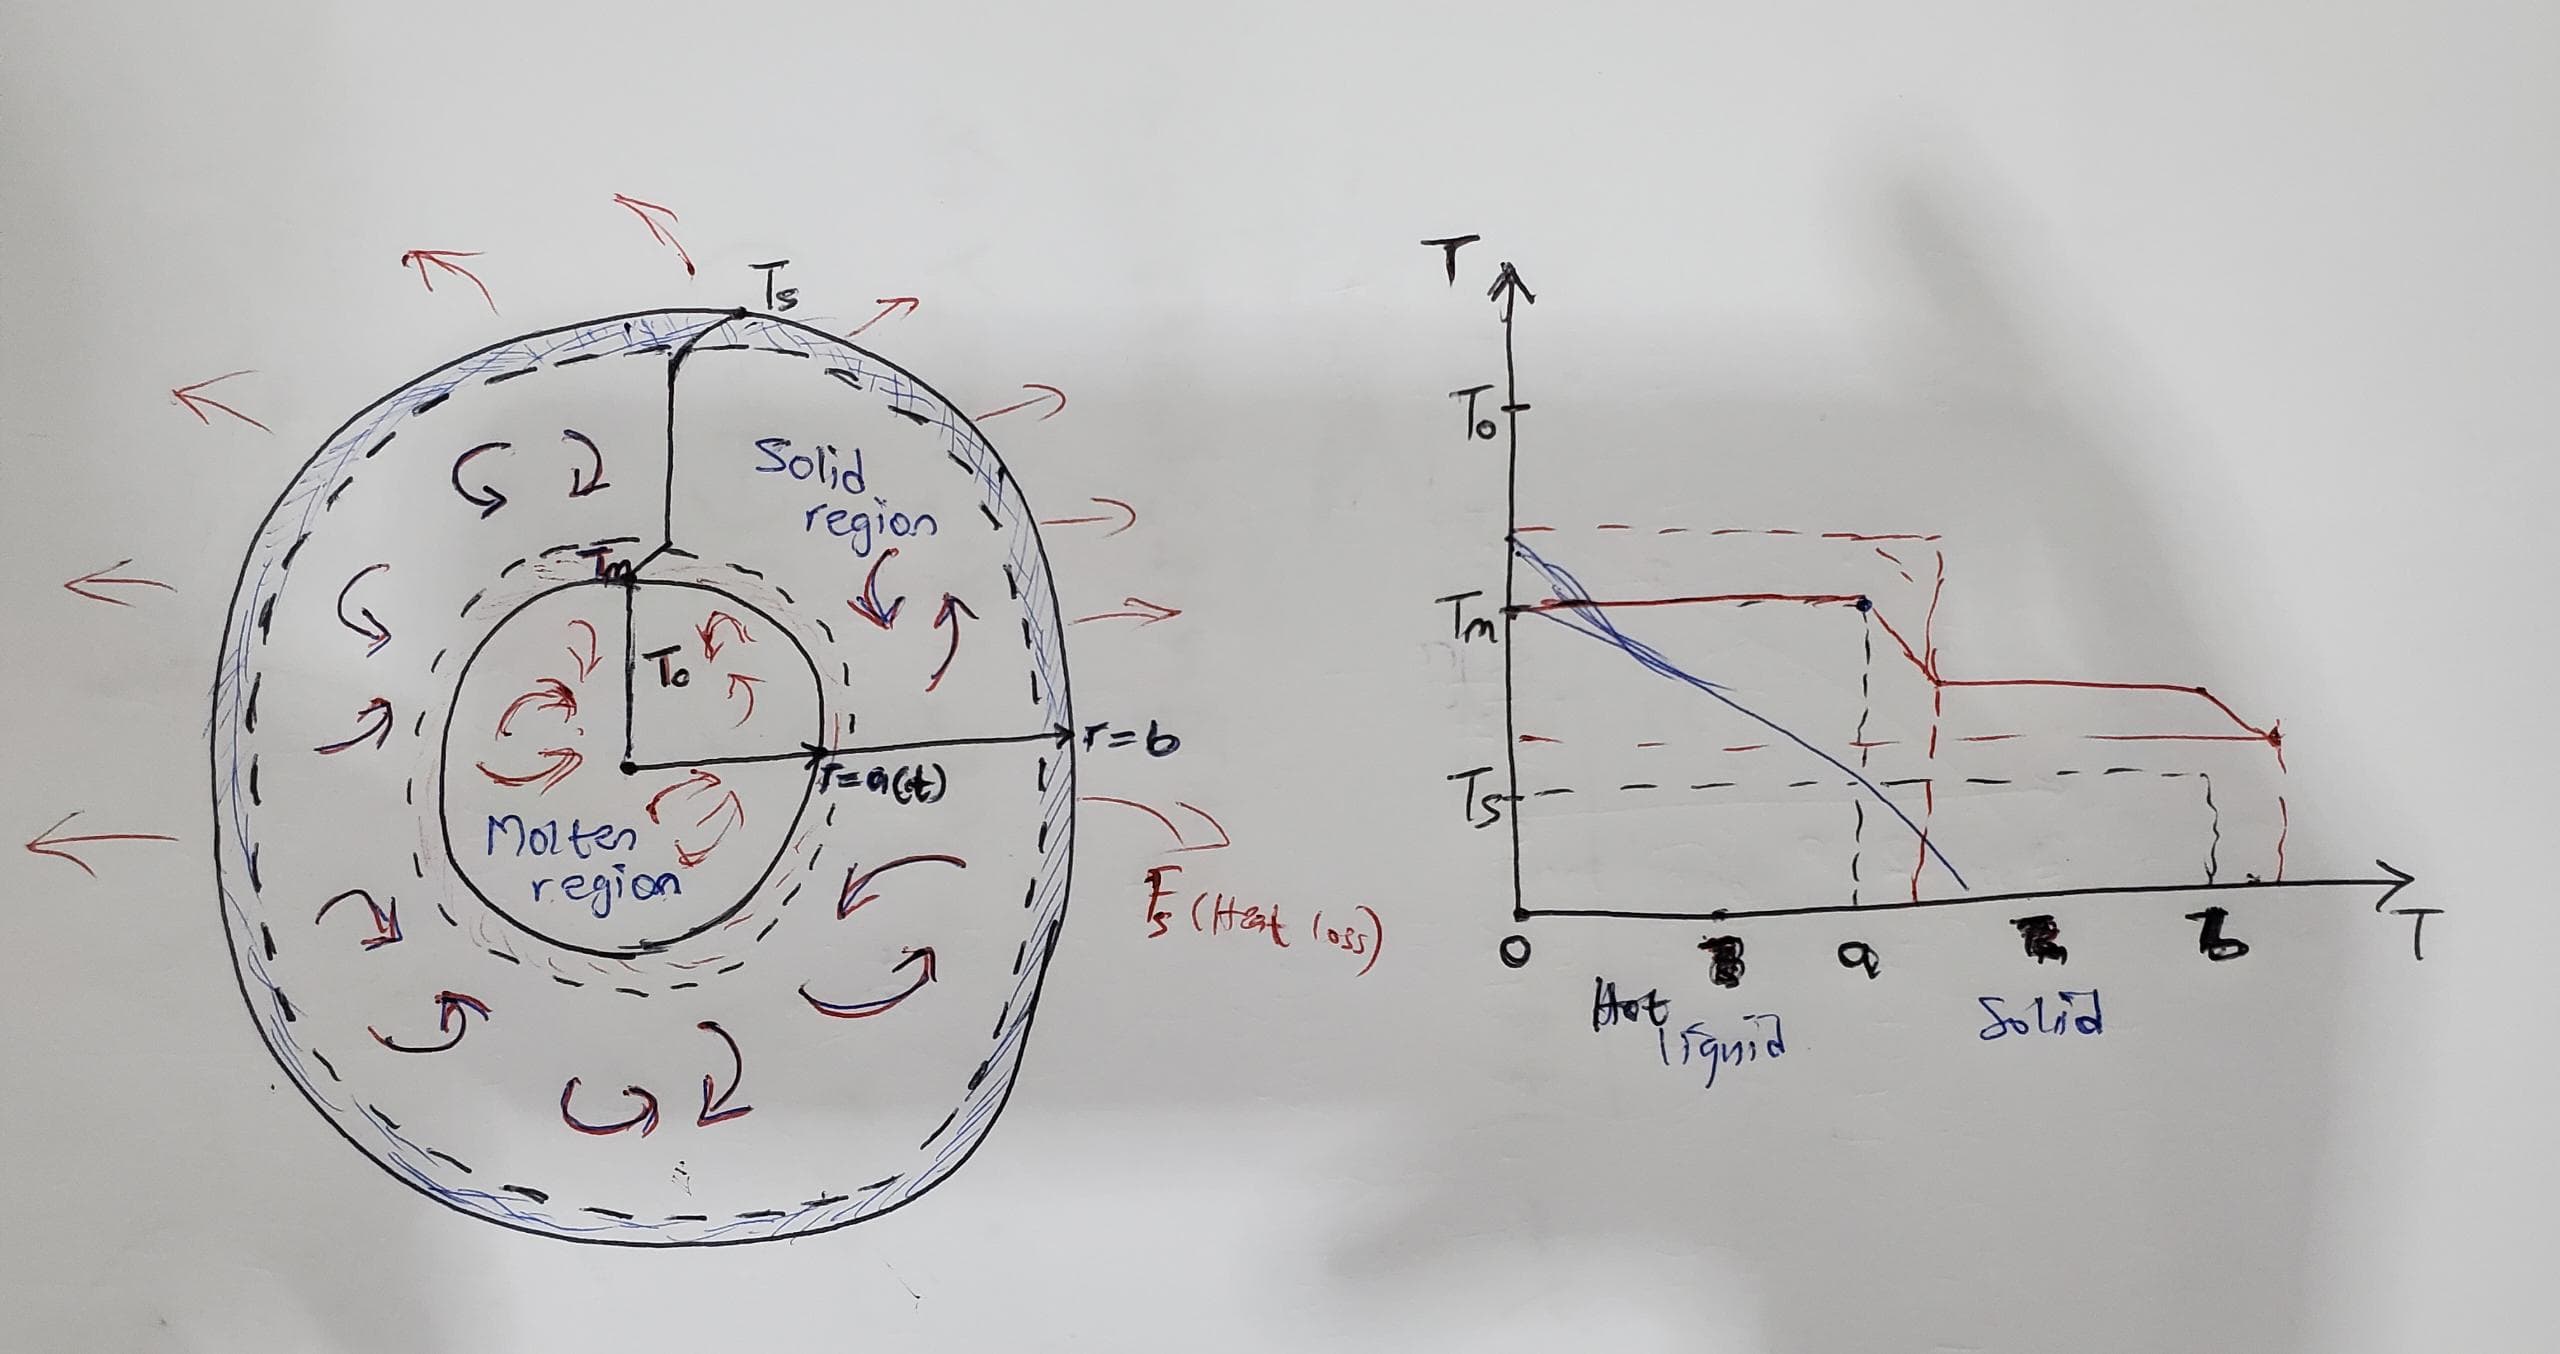 Ts
Solid
region
Tm
To
r=b
r=a(t)
Molten
region
Fs (Heat loss)
T
To
Tm
Ts
0
a
b
T
Hot
liquid
Solid